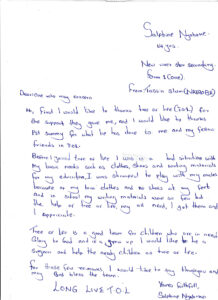 Salphine Nyahome.
14 yrs.
New user star secondary.
Form 1 (one).
From Tassia slum (NAIROBI)
Dear one who my concern
Hi, first I would like to thanks tree or her (T.O.L) for
the support they gave me, and I would like to thanks
for what he has done to me and my fellow
friends in TOL.
Before I joined tree or her I was in a bad situation with
my basic needs such as clothes, shoes and writing materials
for my education, I was ashamed to play with my mates
because of my torn clothes and no shoes at my feet
and in school my writing materials were so few but
the help of tree or her, my all need, I got them and
I appreciate.
Tree or her is a good heart for children who are in need
Glory to God and if I grow up I would like to be a
surgeon and help the needy children as tree or her.
for those few remarks I would like to say thankyou and
may God bless the
Yours faithfull,
LONG LIVE T.O.L
Salphine Nyahome